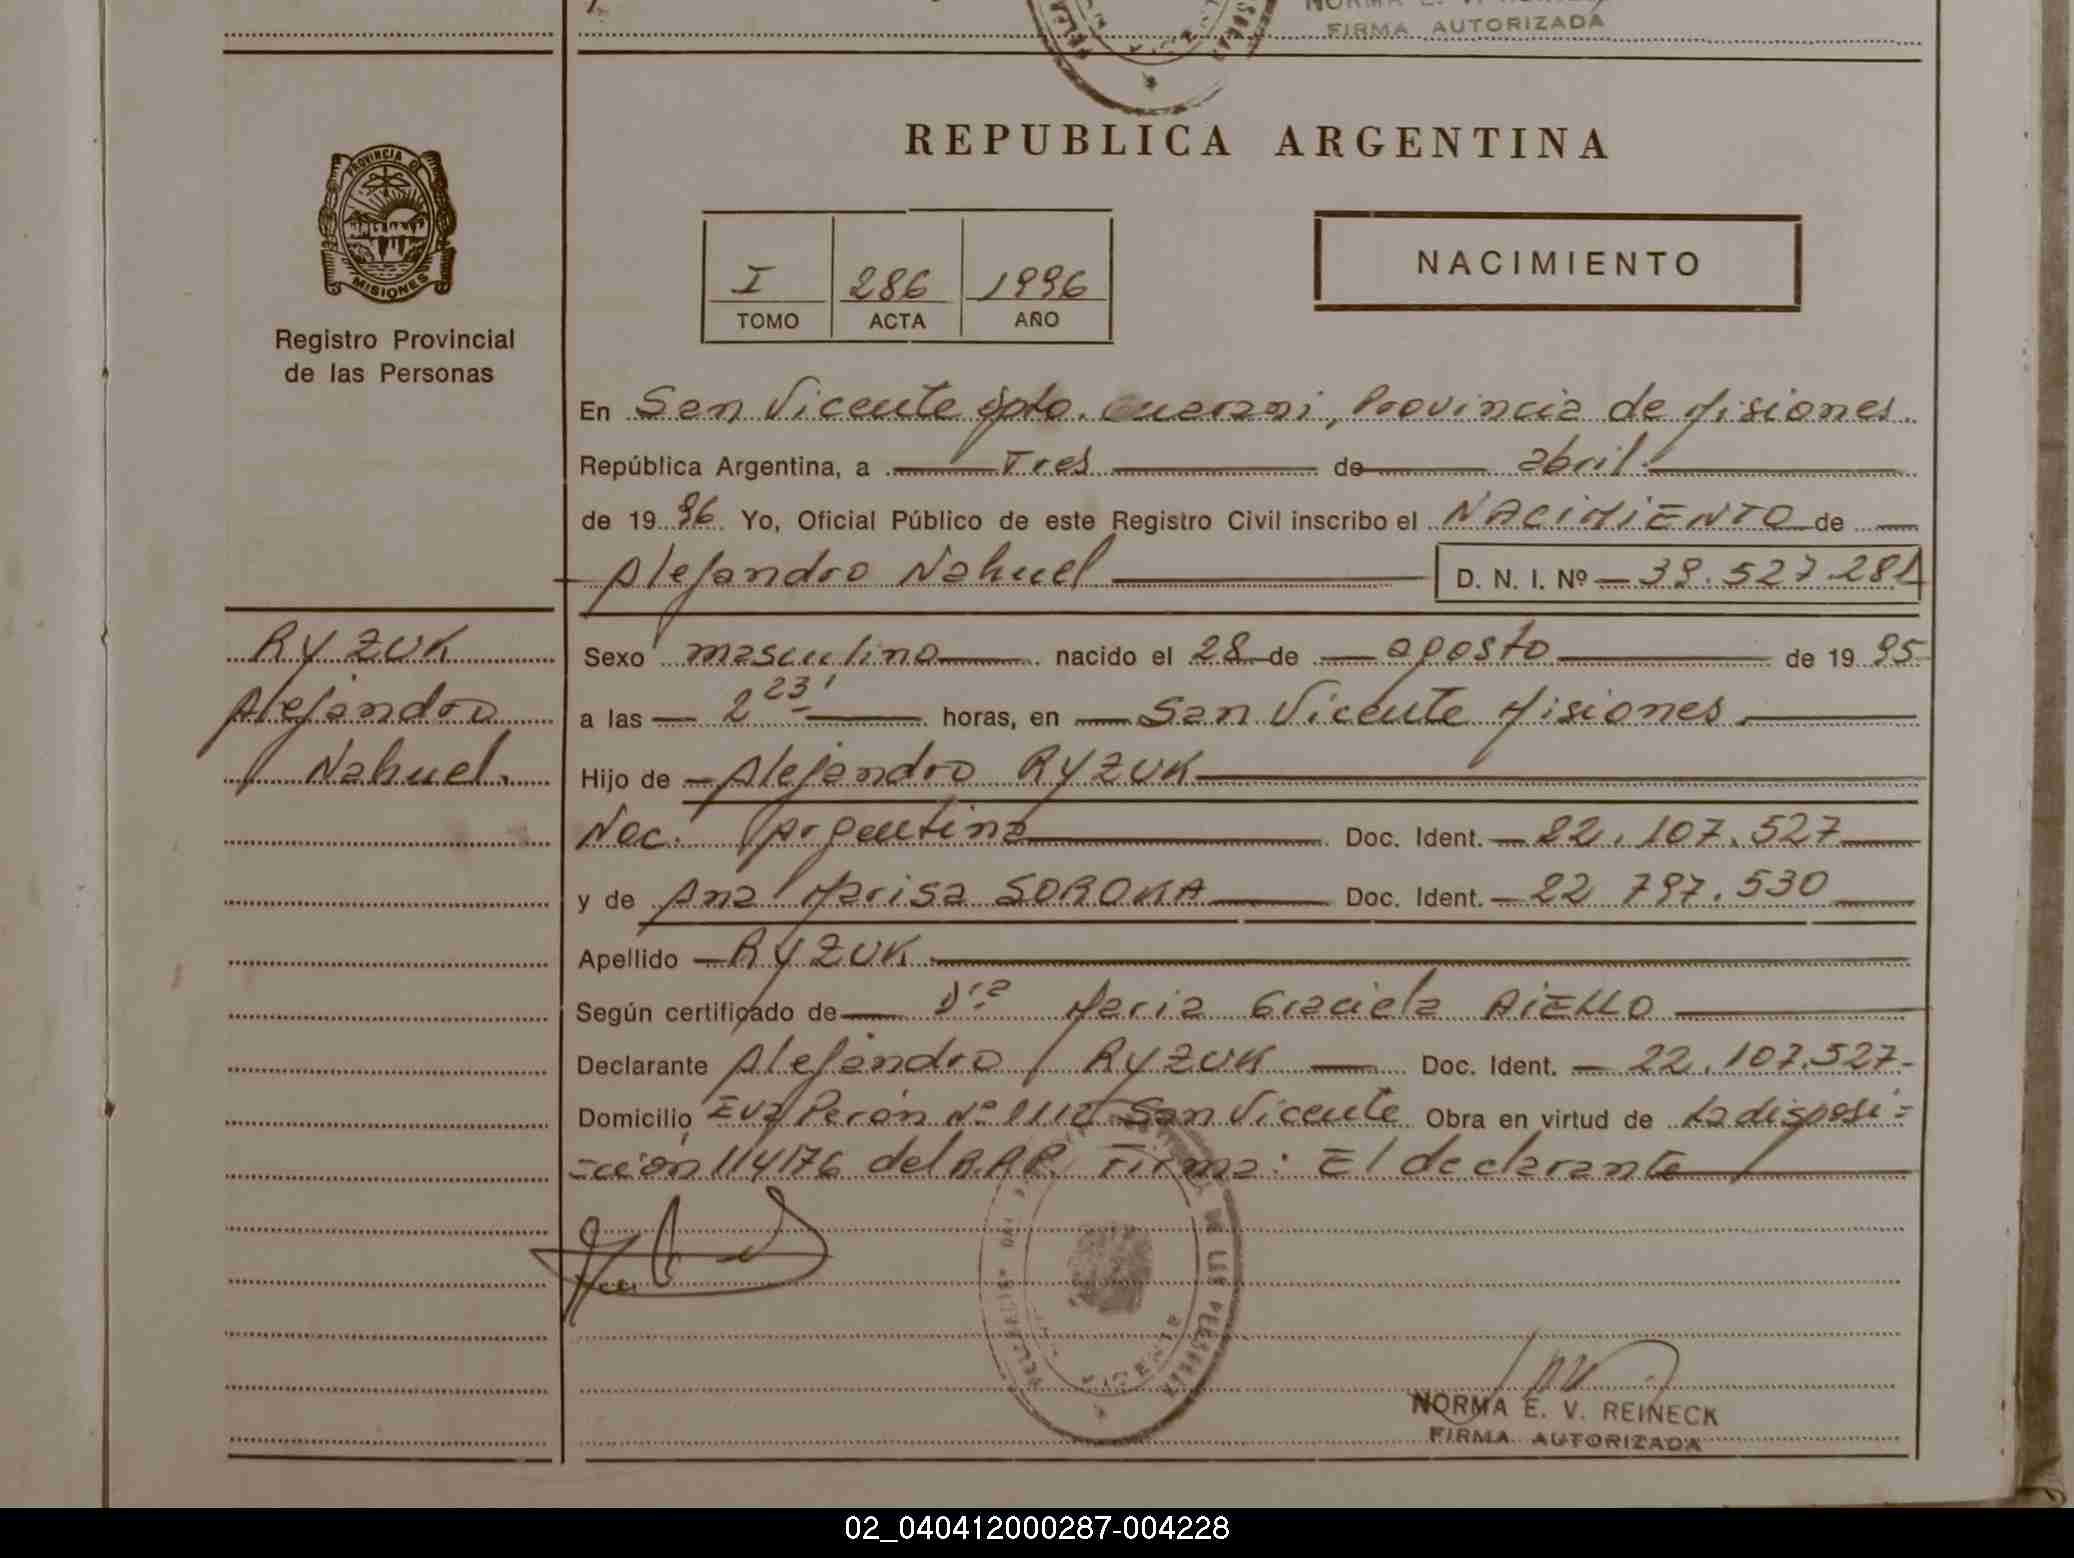 FIRMA AUTORIZADA
REPUBLICA ARGENTINA
PROVINCIA DE
MISIONES
Registro Provincial
de las Personas
NACIMIENTO
I 286 1996
TOMO ACTA AÑO
En San Vicente Dpto. Guarani, Provincia de Misiones.
República Argentina, a Tres de abril
de 1996 Yo, Oficial Público de este Registro Civil inscribo el NACIMIENTO de
Alejandro Nahuel D. N. I. Nº 39.527.281
RYZUK
Alejandro
Nahuel.
Sexo masculino nacido el 28 de agosto de 1995
a las 2 23' horas, en San Vicente Misiones.
Hijo de Alejandro RYZUK
Nac. Argentina Doc. Ident. 22.107.527
y de Ana Marisa SOROKA Doc. Ident. 22 797.530
Apellido RYZUK
Según certificado de Dra Maria Graciela AIELLO
Declarante Alejandro RYZUK Doc. Ident. 22.107.527
Domicilio Eva Perón Nº 1110 San Vicente Obra en virtud de La disposi=
=ción 114176 del R.A.P. Firma: El declarante
NORMA E. V. REINECK
FIRMA AUTORIZADA
02_040412000287-004228